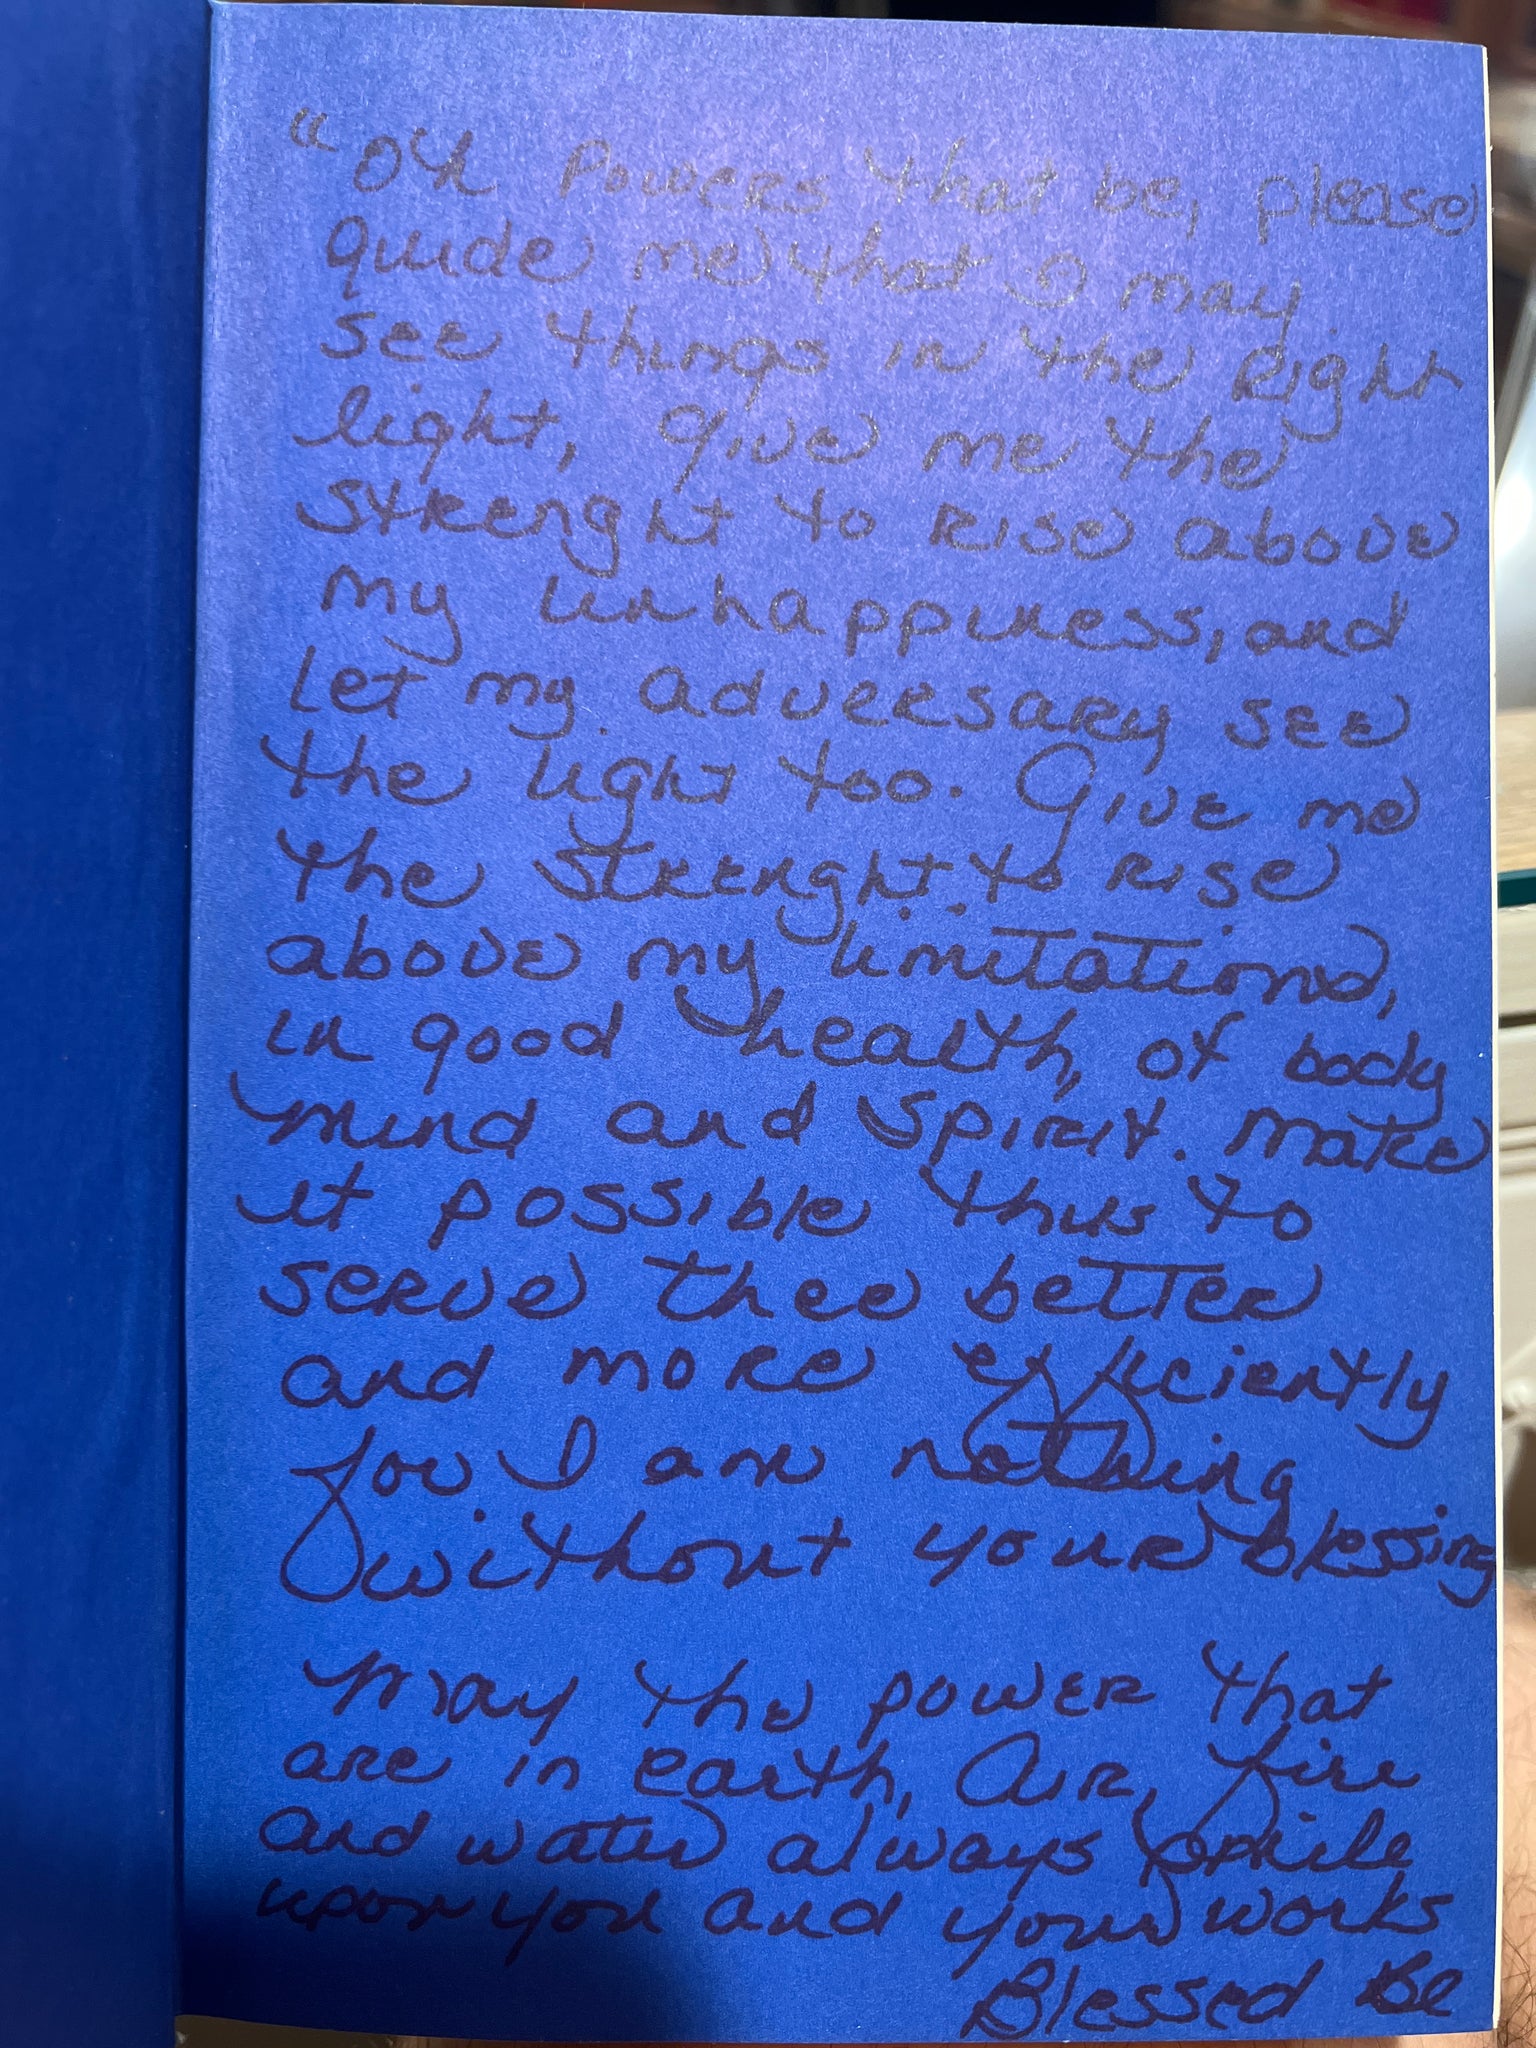 "Oh Powers that be, please
guide me that I may
see things in the Right
light, give me the
strenght to rise above
my unhappiness, and"
let my adversary see
the light too. Give me
the strenght to rise
above my limitations,
in good health, of body
mind and spirit. Make
it possible thus to
serve thee better
and more efficiently
for I am nothing
without your blessing
May the power that
are in earth, Air, fire
and water always smile
upon you and your works
Blessed Be